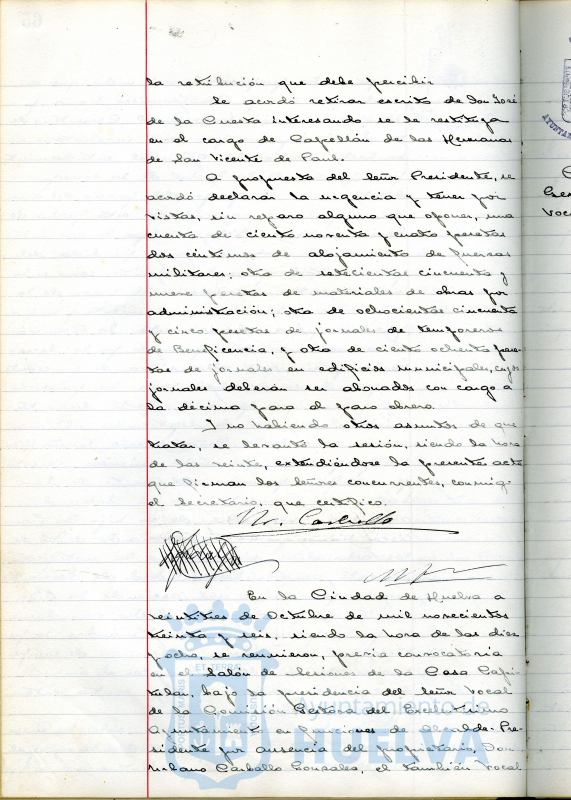 la retribución que debe percibir.
Se acordó retirar escrito de Don José
de la Cuesta interesando se le restituya
en el cargo de Capellán de las Hermanas
de San Vicente de Paul.
A propuesta del Señor Presidente, se
acordó declarar la urgencia y tener por
vistas, sin reparo alguno que oponer, una
cuenta de ciento noventa y cuatro pesetas
dos céntimos de alojamiento de fuerzas
militares; otra de setecientas cincuenta y
nueve pesetas de materiales de obras por
administración; otra de ochocientas cincuenta
y cinco pesetas de jornales de temporeros
de Beneficencia, y otra de ciento ochenta pese-
tas de jornales en edificios municipales, cuyos
jornales deberán ser abonados con cargo a
la décima para el paro obrero.
Y no habiendo otros asuntos de que
tratar, se levantó la sesión, siendo la hora
de las veinte, extendiéndose la presente acta
que firman los señores concurrentes, conmigo
el Secretario, que certifico.
En la Ciudad de Huelva a
veintitres de Octubre de mil novecientos
treinta y seis, siendo la hora de las diez
y ocho, se reunieron, previa convocatoria
en el Salón de Sesiones de la Casa Capi-
tular, bajo la presidencia del Señor Vocal
de la Comisión Gestora del Excmo.
Ayuntamiento en funciones de Alcalde-Pre-
sidente por ausencia del propietario, Don
Carballo Gonzales, el también vocal
Ayuntamiento de
HUELVA